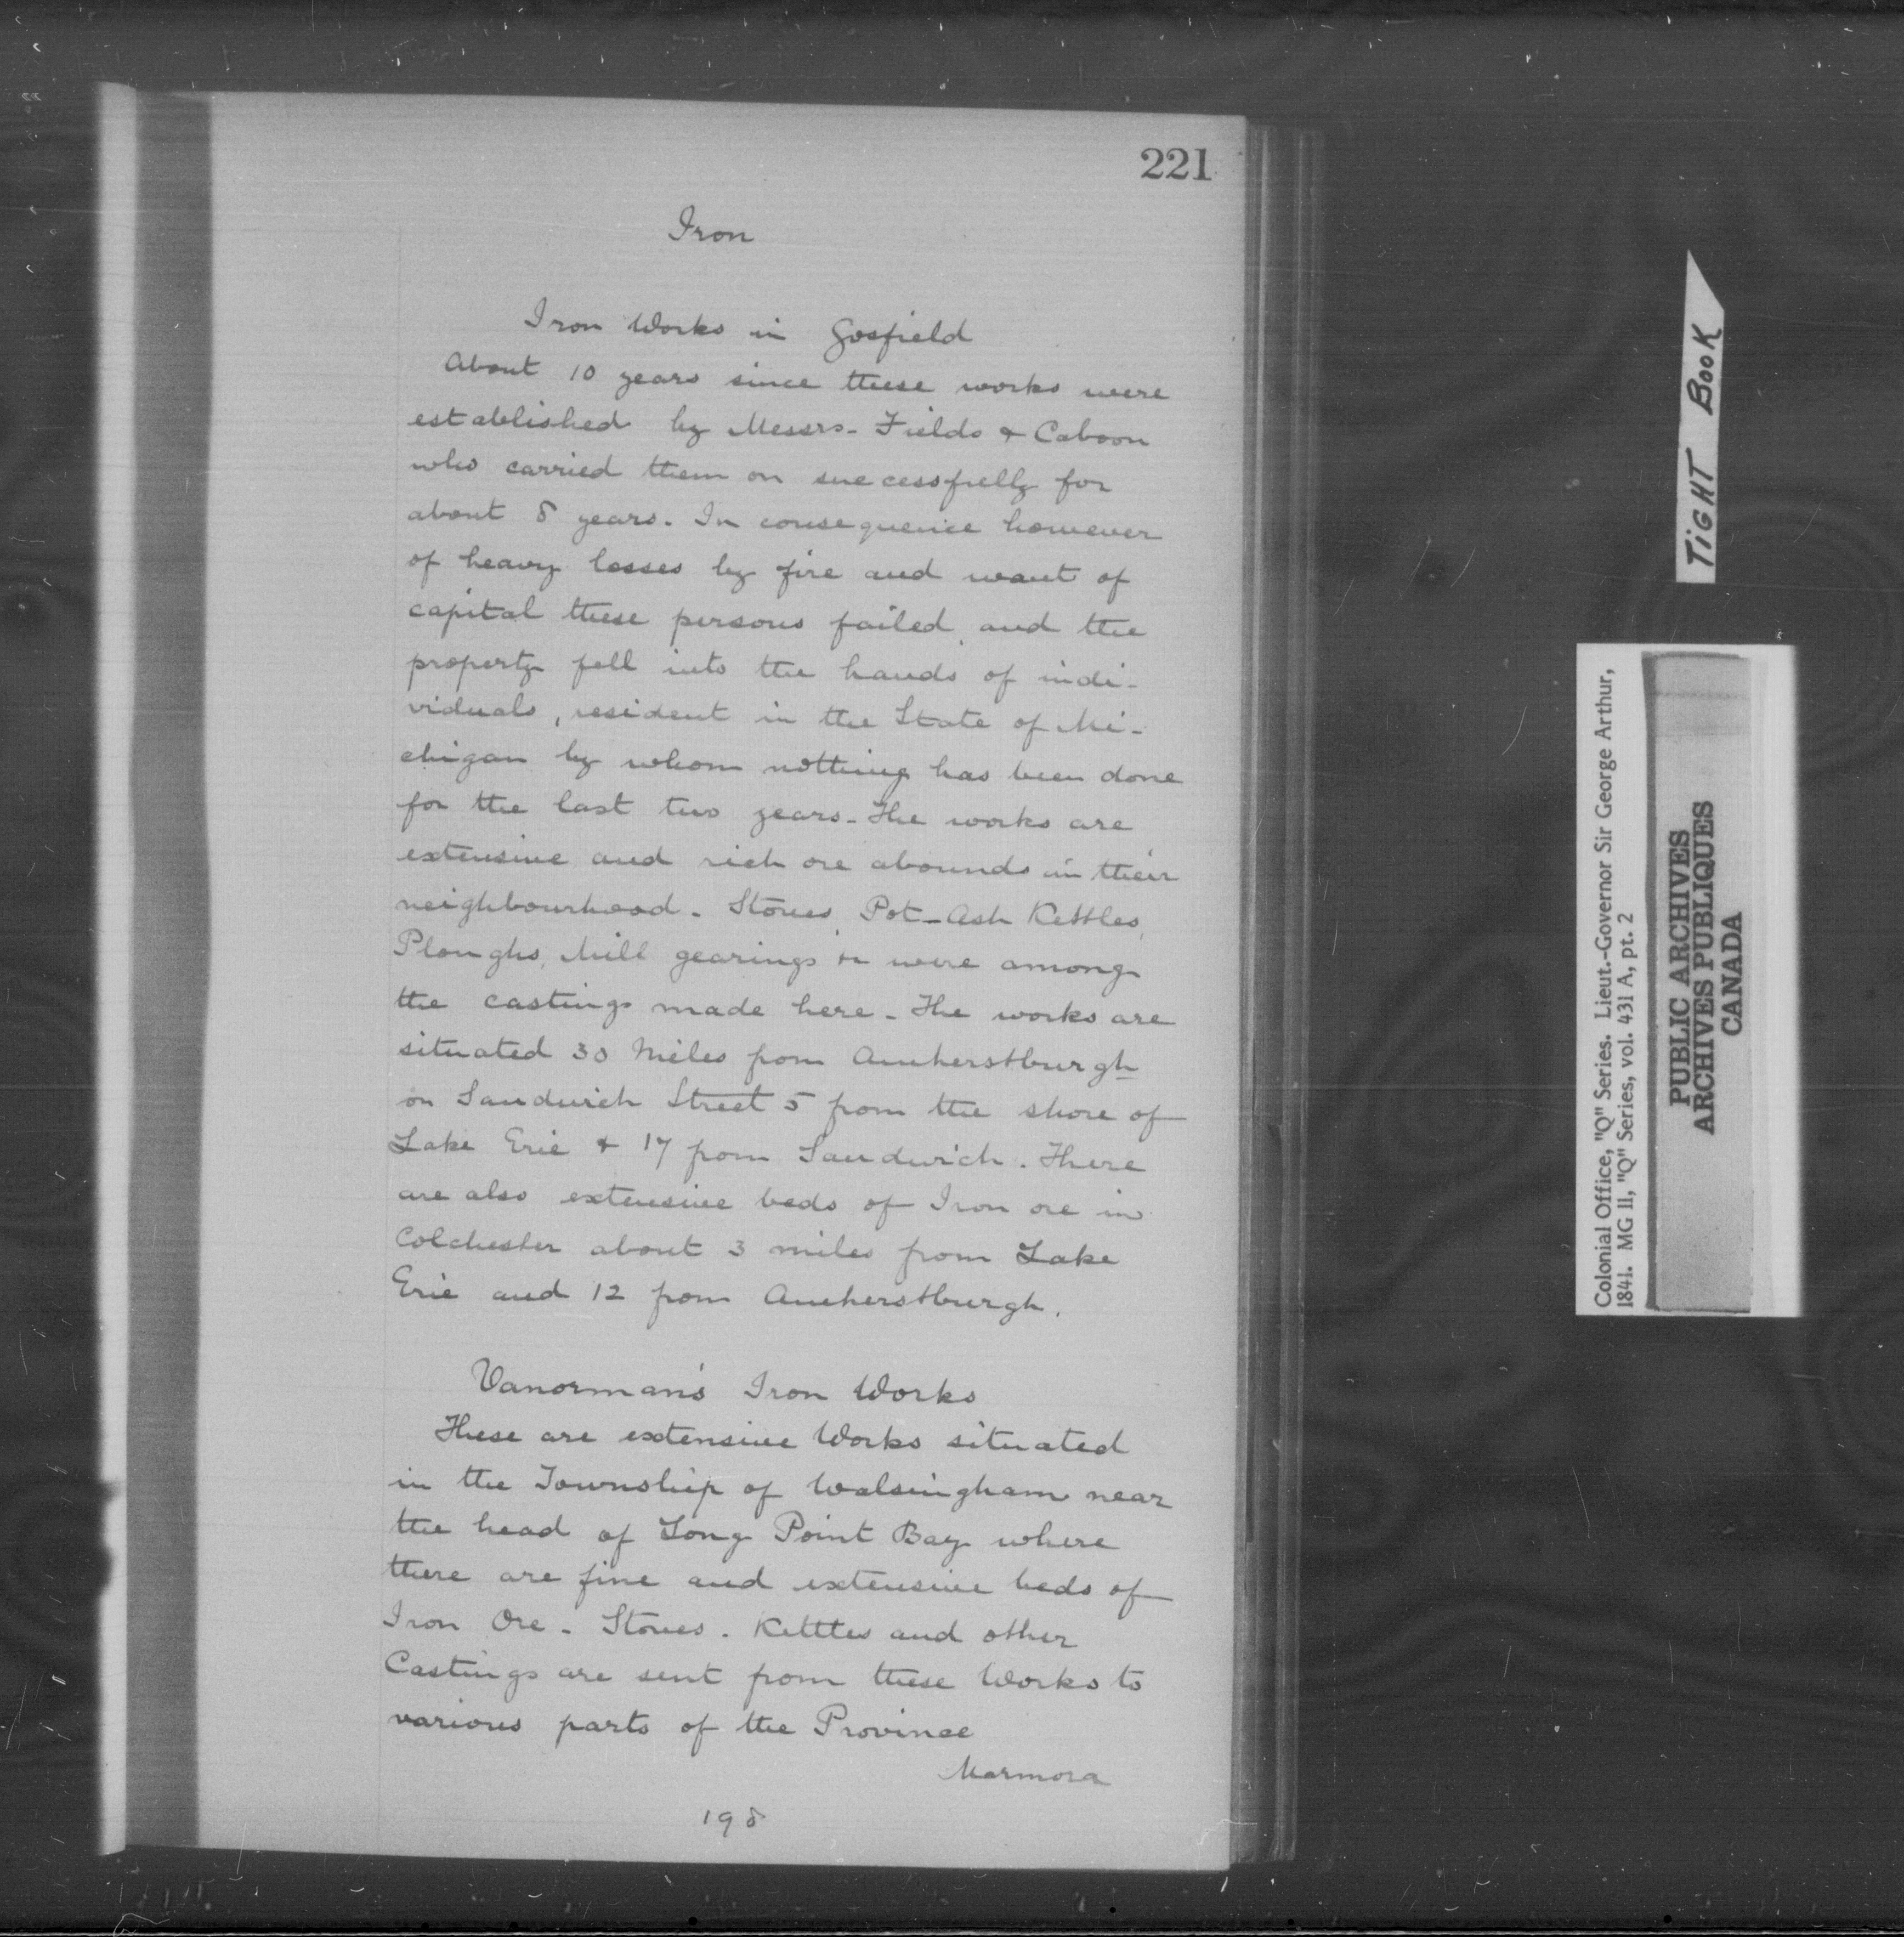 221
Iron
Iron Works in Gosfield
About 10 years since these works were
established by Messrs- Fields & Cahoon
who carried them on successfully for
about 8 years. In consequence however
of heavy losses by fire and want of
capital these persons failed, and the
property fell into the hands of indi-
viduals, resident in the State of Mi-
chigan by whom nothing has been done
for the last two years- The works are
extensive and rich ore abounds in their
neighbourhood. Stoves, Pot-Ash Kettles,
Ploughs, Mill gearings &c were among
the castings made here- The works are
situated 30 Miles from Amherstburgh
on Sandwich Street 5 from the shore of
Lake Erie & 17 from Sandwich. There
are also extensive beds of Iron ore in
Colchester about 3 miles from Lake
Erie and 12 from Amherstburgh.
Vanorman's Iron Works
These are extensive Works situated
in the Township of Walsingham near
the head of Long Point Bay where
there are fine and extensive beds of
Iron Ore- Stoves. Kettles and other
Castings are sent from these Works to
various parts of the Province
Marmora
198
TiGHT BOOK
Colonial Office, "Q" Series. Lieut.-Governor Sir George Arthur,
1841. MG 11, "Q" Series, vol. 431 A, pt. 2
PUBLIC ARCHIVES
ARCHIVES PUBLIQUES
CANADA